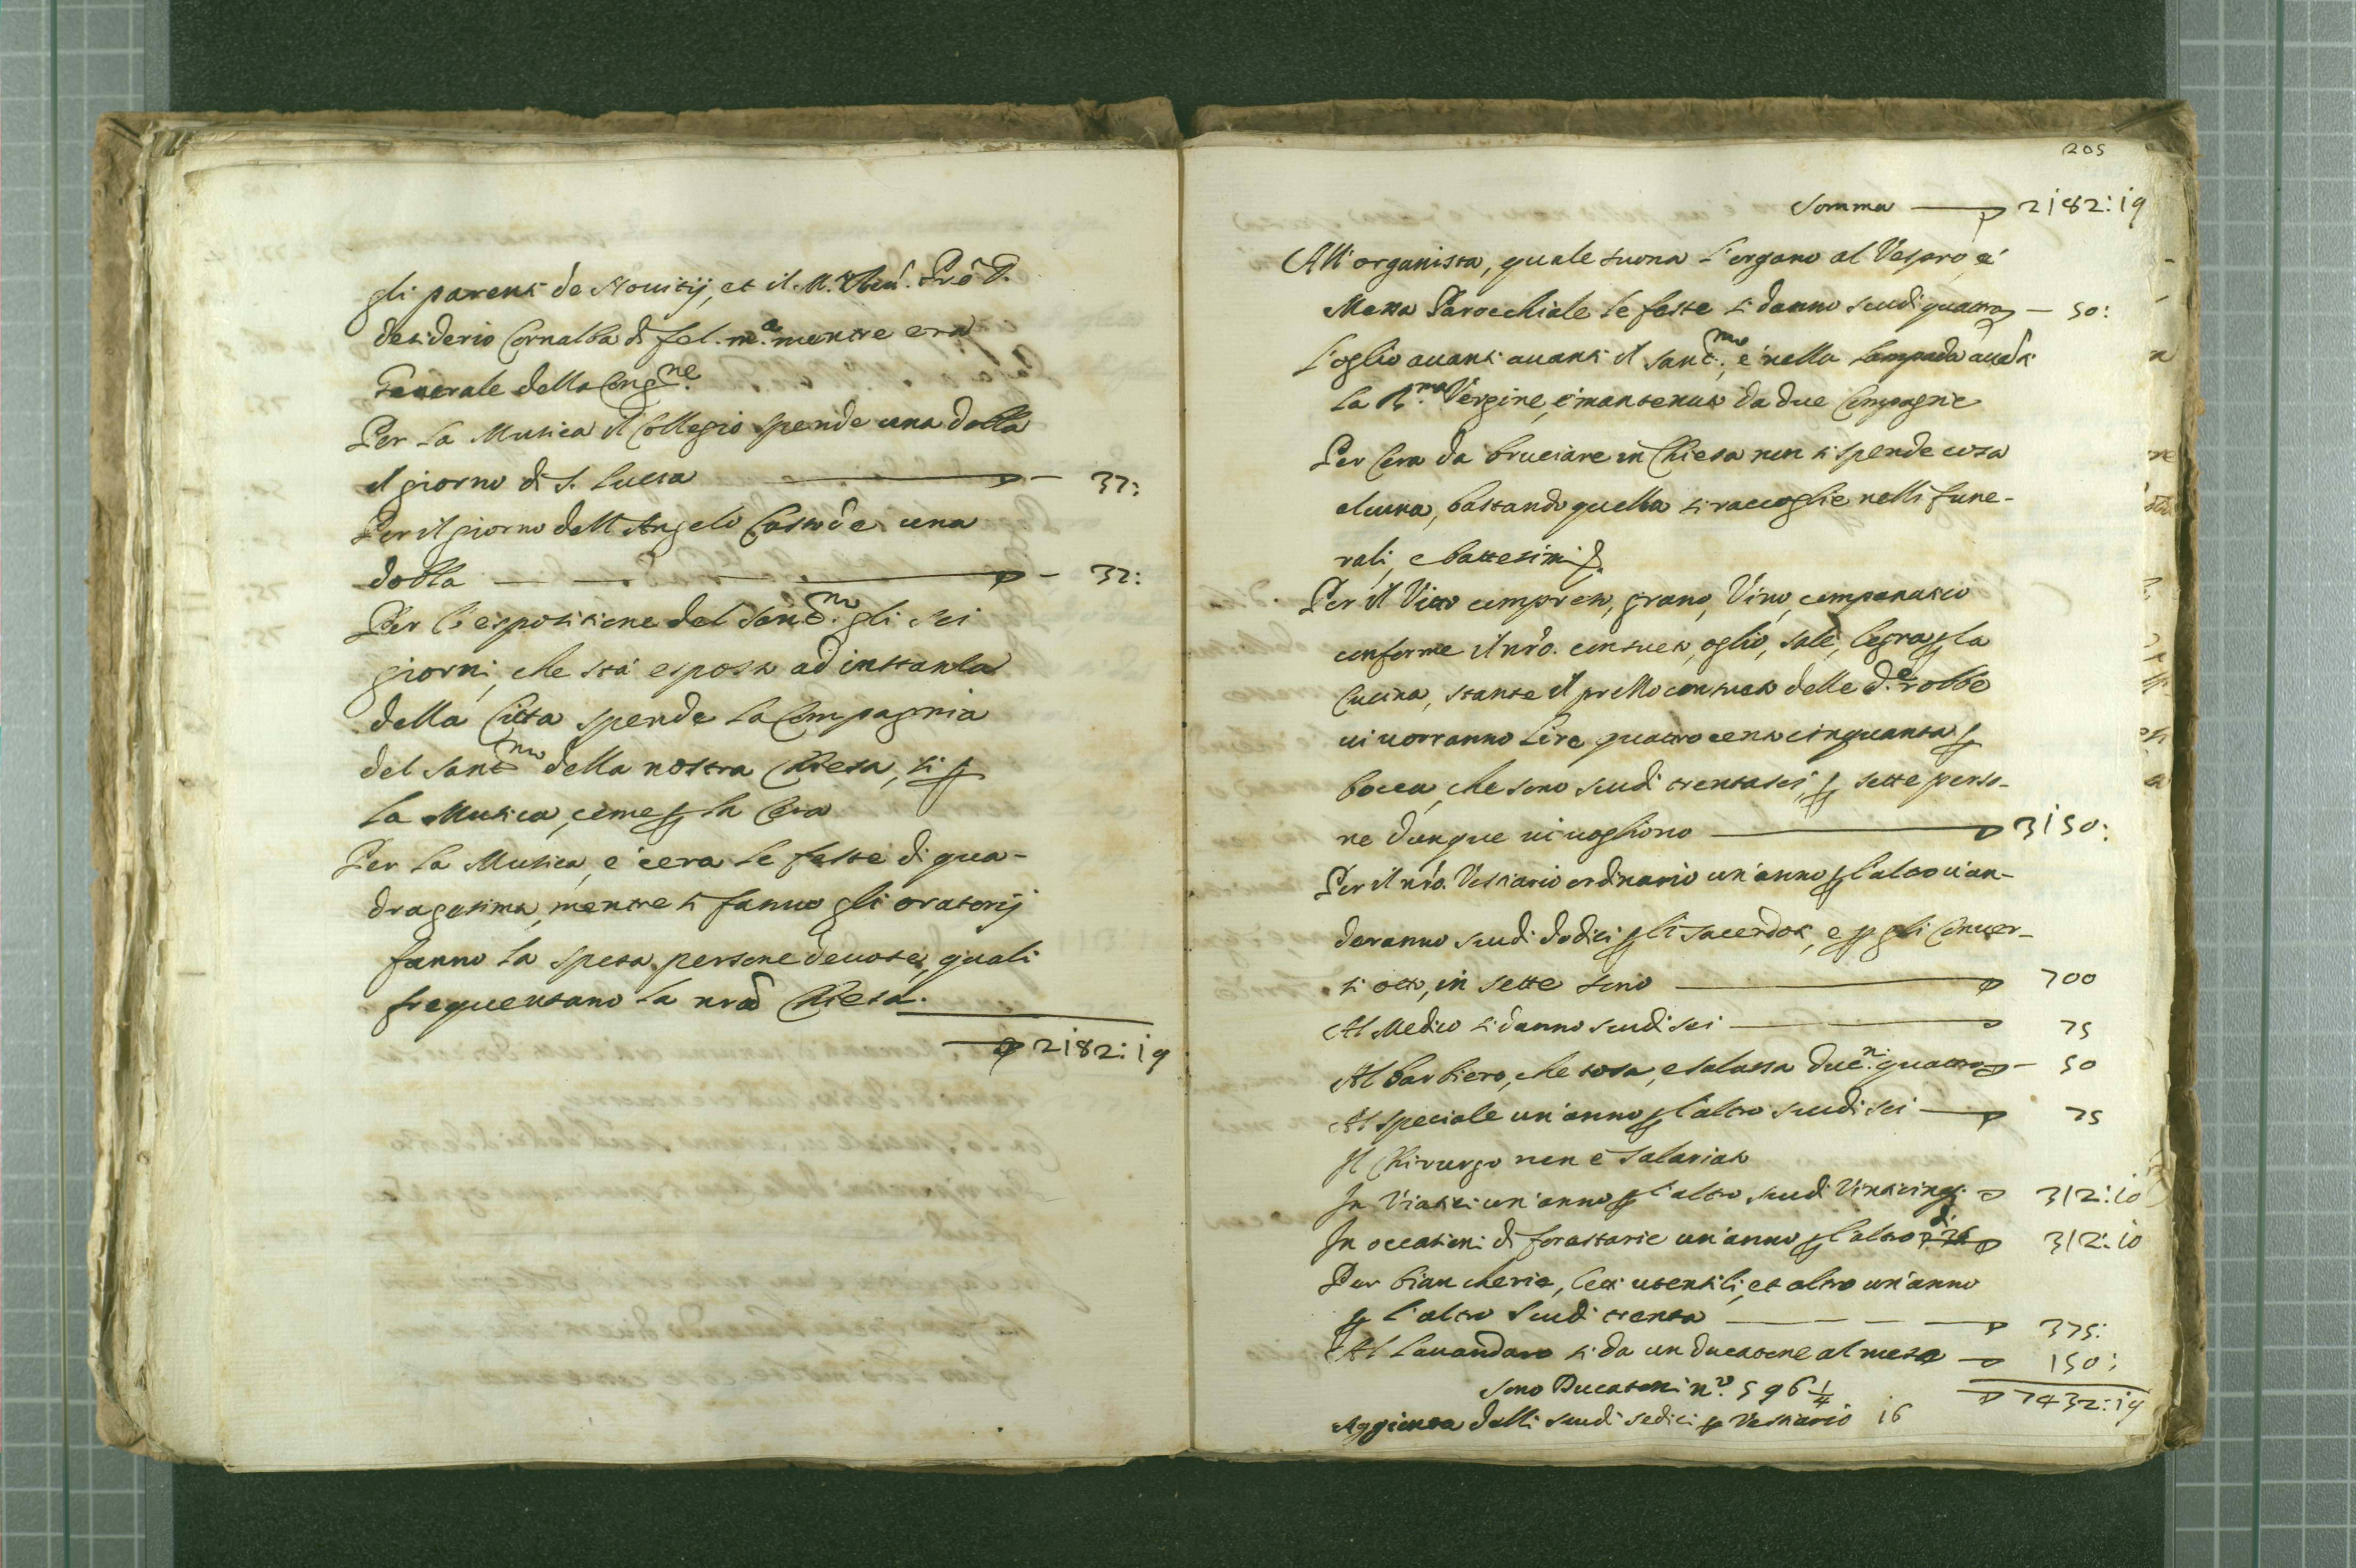 gli parenti de Nouitij, et il M. Reu. Prê D.
desiderio Cornalba di fel. me. mentre era
Generale della Congne.
Per la Musica il Collegio spende una dobla
il giorno di S. Lucca — 37:
Per il giorno dell'Angelo Custode una
dobla — 37:
Per l'espositione del Santmo. gli sei
giorni, che stà esposto ad instanza
della Città spende la Compagnia
del Santmo della nostra Chiesa, si p
la Musica, come p la Cera
Per la Musica, e cera le feste di qua-
dragesima, mentre si fanno gli oratorij
fanno la spesa persone deuote, quali
frequentano la nrâ Chiesa.
2182:19
205
Somma — 2182:19
All'organista, quale suona l'organo al Vespro, e
Messa Parocchiale le feste si danno scudi quattro — 50:
L'oglio auanti auanti il Santmo., e nella lampada auanti
la Bma. Vergine, è mantenuto da due Compagnie
Per Cera da bruciare in Chiesa non si spende cosa
alcuna, bastando quella si raccoglie nelli fune-
rali, e battesimi
Per il Vitto compreso, grano, Vino, companatico
conforme il nrô. consueto, oglio, sale, legna p la
Cucina, stante il prezzo consueto delle de. robbe
ui uorranno Lire quattrocento cinquanta p
bocca, che sono scudi trentasei, p sette perso-
ne dunque ui uogliono — 3150:
Per il nrô. Vestiario ordinario un'anno p l'altro u'an-
deranno scudi dodici p li sacerdoti, e p gli Conuer-
si otto, in sette sono — 700
Al Medico si danno scudi sei — 75
Al barbiero, che tosa, e salassa Ducni. quattro — 50
Al speciale un'anno p l'altro scudi sei — 75
Il Chirurgo non è salariato
In Viatici un'anno p l'altro scudi Vinticinq. — 312:10
In occasioni di forastarie un'anno p l'altro sdi 25 — 312:10
Per biancherie, letti utensili, et altro un'anno
p l'altro Scudi trenta — 375:
Al Lauandaro si da un ducatone al mese — 150:
Sono Ducatoni no. 596 1/4 7432:19
Aggionta delli scudi sedici p Vestiario 16